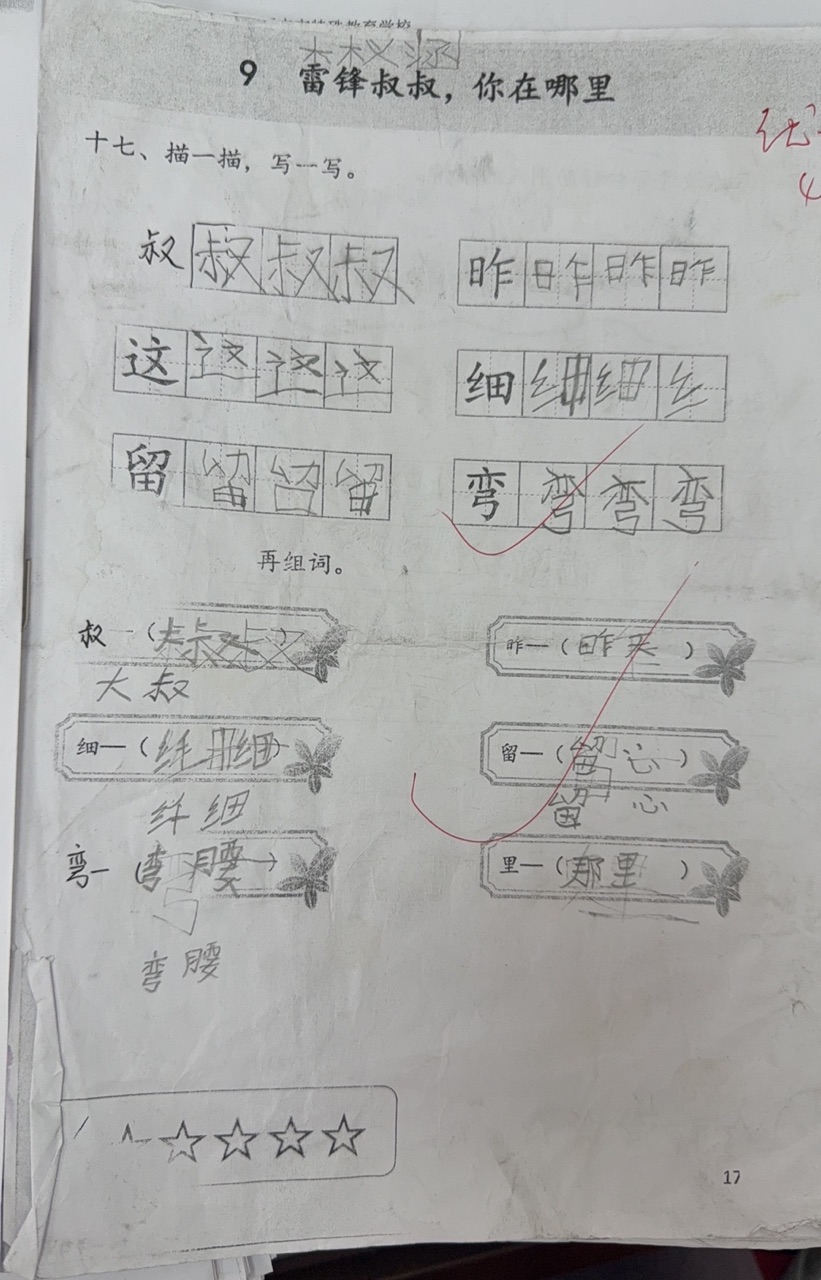 特殊教育学校
9 雷锋叔叔，你在哪里
优
十七、描一描，写一写。
叔 叔 叔 叔 昨 昨 昨 昨
这 这 这 这 细 细 细 纟
留 留 留 留 弯 弯 弯 弯
再组词。
叔—（大叔） 昨—（昨天）
大叔
细—（纤细） 留—（留心）
纤细 留心
弯—（弯腰） 里—（那里）
弯腰
17